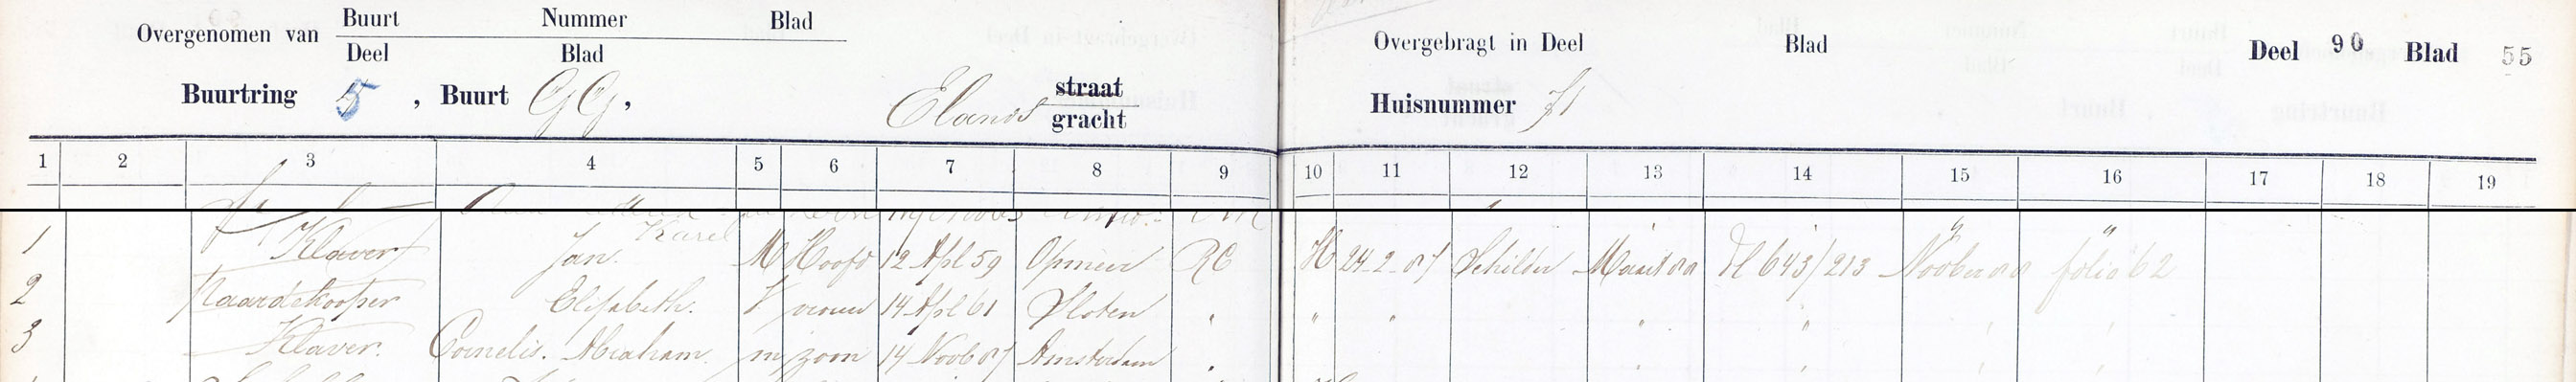 Overgenomen van Buurt Nummer Blad
Deel Blad
Buurtring 5, Buurt GG, Elands straat
gracht
Overgebragt in Deel Blad Deel 90 Blad 55
Huisnummer 71
1 2 3 4 5 6 7 8 9 10 11 12 13 14 15 16 17 18 19
Karel
1 Klaver Jan. M Hoofd 12 Apl 59 Opmeer RC H 24-2-87 Schilder Dl 643/213 folio 62
2 Paardekooper Elisabeth. V vrouw 14 Apl 61 Sloten " " "
3 Klaver. Cornelis. Abraham. m zoon 14 Novb 87 Amsterdam "